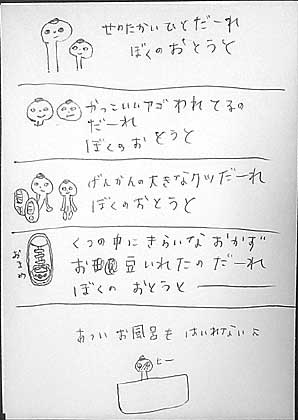 せのたかいひと だーれ
ぼくの おとうと
かっこいい アゴ われ てるの
だーれ
ぼくの お とうと
げんかんの大きなクツ だーれ
ぼくの おとうと
くつの中に きらいな おかず
お豆 いれたの だーれ
おまめ
ぼくの おとうと
あつい お風呂も はいれない
ヒー